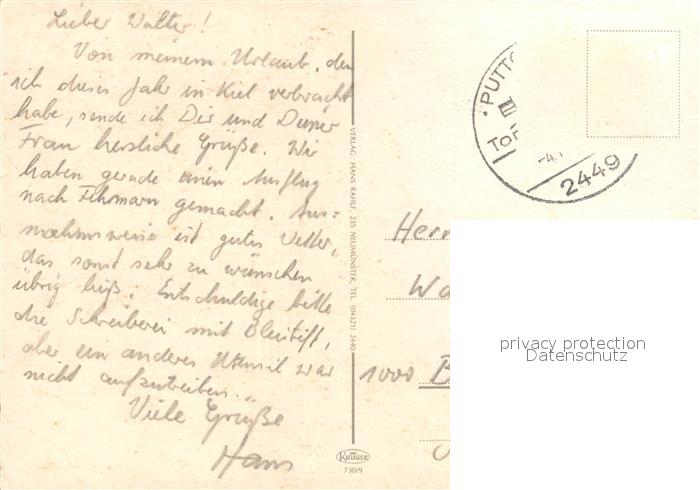 Lieber Walter!
Von meinem Urlaub, den
ich dieses Jahr in Kiel verbracht
habe, sende ich Dir und Deiner
Frau herzliche Grüße. Wir
haben gerade einen Ausflug
nach Fehmarn gemacht. Aus=
nahmsweise ist gutes Wetter,
das sonst sehr zu wünschen
übrig ließ. Entschuldige bitte
die Schreiberei mit Bleistift,
aber ein anderes Utensil war
nicht aufzutreiben.
Viele Grüße
Hans
VERLAG HANS RAHLF, 235 NEUMÜNSTER, TEL. (04321) 2440
KRÜGER
730/9
PUTTG
Tor
2449
Herr
Wa
1000 B
privacy protection
Datenschutz